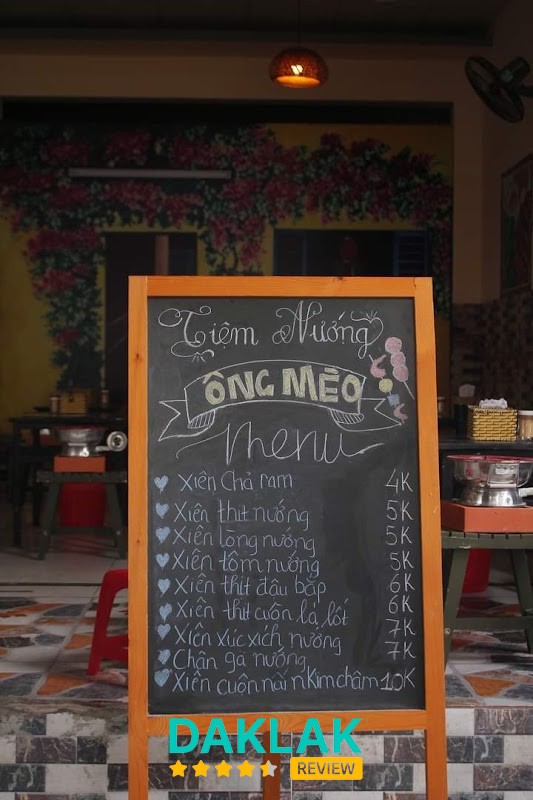 Tiệm Nướng
ÔNG MÈO
menu
Xiên Chả ram 4K
Xiên thịt nướng 5K
Xiên lòng nướng 5K
Xiên tôm nướng 5K
Xiên thịt đậu bắp 6K
Xiên thịt cuốn lá lốt 6K
Xiên xúc xích nướng 7K
Chân gà nướng 7K
Xiên cuộn nấm Kim châm 10K
DAKLAK
REVIEW